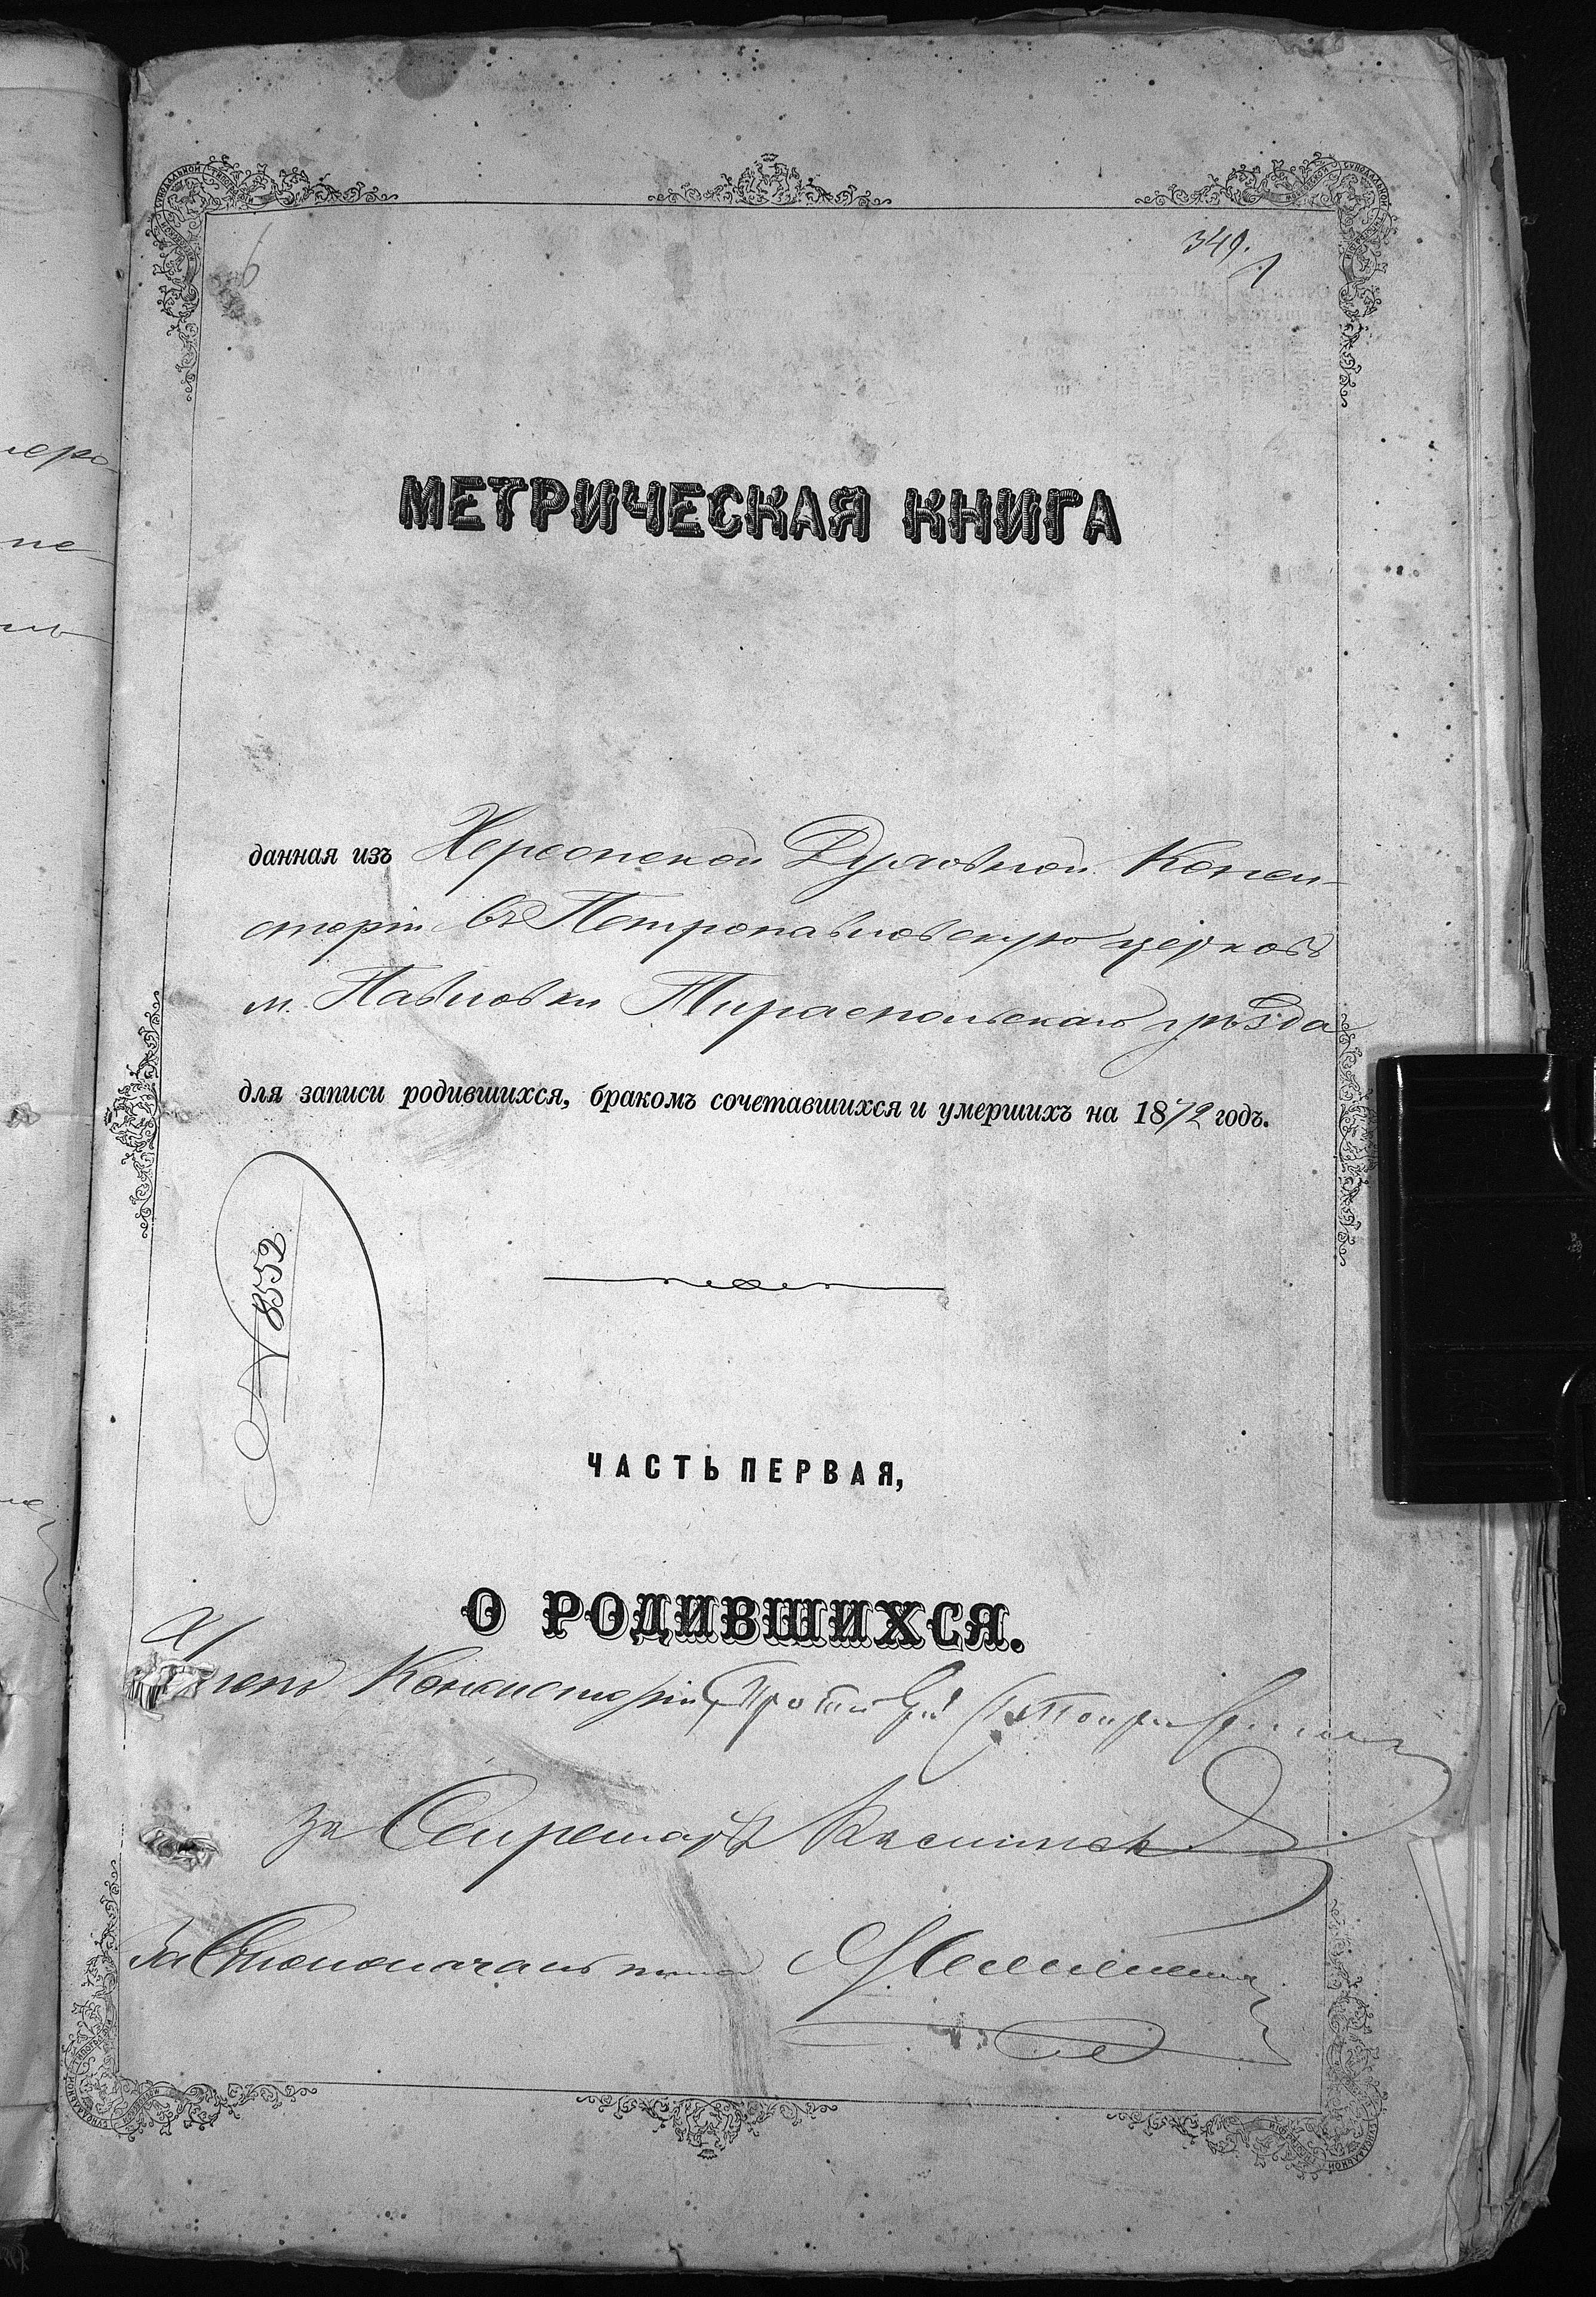 349.
МЕТРИЧЕСКАЯ КНИГА
данная изъ Херсонской Духовной Конси-
сторіи въ Петропавловскую церковь
м. Павловки Тираспольскаго уѣзда
для записи родившихся, бракомъ сочетавшихся и умершихъ на 1872 годъ.
№ 8552
ЧАСТЬ ПЕРВАЯ,
О РОДИВШИХСЯ.
Членъ Консисторіи Протоіерей
За Секретаря
За Столоначальника